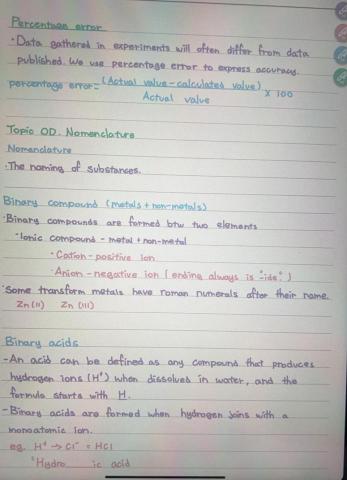 Percentage error
·Data gathered in experiments will often differ from data
published. We use percentage error to express accuracy.
percentage error = (Actual value - calculated value) x 100
Actual value
Topic 0D. Nomenclature
Nomenclature
·The naming of substances.
Binary compound (metals + non-metals)
·Binary compounds are formed btw two elements
·Ionic compound - metal + non-metal
·Cation - positive ion
·Anion - negative ion (ending always is "-ide")
·Some transform metals have roman numerals after their name.
Zn (II) Zn (III)
Binary acids
-An acid can be defined as any compound that produces
hydrogen ions (H⁺) when dissolved in water, and the
formula starts with H.
-Binary acids are formed when hydrogen joins with a
monoatomic ion.
eg. H⁺ → Cl⁻ = HCl
"Hydro ___ ic acid